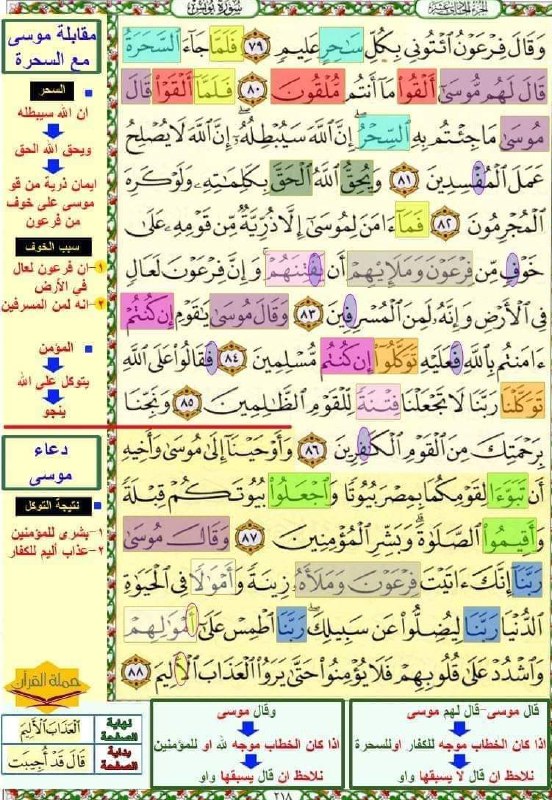 سورة يونس
الجزء الحادي عشر
وَقَالَ فِرْعَوْنُ ٱئْتُونِى بِكُلِّ سَٰحِرٍ عَلِيمٍ ٧٩ فَلَمَّا جَآءَ ٱلسَّحَرَةُ
قَالَ لَهُم مُّوسَىٰٓ أَلْقُوا۟ مَآ أَنتُم مُّلْقُونَ ٨٠ فَلَمَّآ أَلْقَوْا۟ قَالَ
مُوسَىٰ مَا جِئْتُم بِهِ ٱلسِّحْرُ إِنَّ ٱللَّهَ سَيُبْطِلُهُۥٓ إِنَّ ٱللَّهَ لَا يُصْلِحُ
عَمَلَ ٱلْمُفْسِدِينَ ٨١ وَيُحِقُّ ٱللَّهُ ٱلْحَقَّ بِكَلِمَٰتِهِۦ وَلَوْ كَرِهَ
ٱلْمُجْرِمُونَ ٨٢ فَمَآ ءَامَنَ لِمُوسَىٰٓ إِلَّا ذُرِّيَّةٌ مِّن قَوْمِهِۦ عَلَىٰ
خَوْفٍ مِّن فِرْعَوْنَ وَمَلَإِي۟هِمْ أَن يَفْتِنَهُمْ وَإِنَّ فِرْعَوْنَ لَعَالٍ
فِى ٱلْأَرْضِ وَإِنَّهُۥ لَمِنَ ٱلْمُسْرِفِينَ ٨٣ وَقَالَ مُوسَىٰ يَٰقَوْمِ إِن كُنتُمْ
ءَامَنتُم بِٱللَّهِ فَعَلَيْهِ تَوَكَّلُوٓا۟ إِن كُنتُم مُّسْلِمِينَ ٨٤ فَقَالُوا۟ عَلَى ٱللَّهِ
تَوَكَّلْنَا رَبَّنَا لَا تَجْعَلْنَا فِتْنَةً لِّلْقَوْمِ ٱلظَّٰلِمِينَ ٨٥ وَنَجِّنَا
بِرَحْمَتِكَ مِنَ ٱلْقَوْمِ ٱلْكَٰفِرِينَ ٨٦ وَأَوْحَيْنَآ إِلَىٰ مُوسَىٰ وَأَخِيهِ
أَن تَبَوَّءَا لِقَوْمِكُمَا بِمِصْرَ بُيُوتًا وَٱجْعَلُوا۟ بُيُوتَكُمْ قِبْلَةً
وَأَقِيمُوا۟ ٱلصَّلَوٰةَ وَبَشِّرِ ٱلْمُؤْمِنِينَ ٨٧ وَقَالَ مُوسَىٰ
رَبَّنَآ إِنَّكَ ءَاتَيْتَ فِرْعَوْنَ وَمَلَأَهُۥ زِينَةً وَأَمْوَٰلًا فِى ٱلْحَيَوٰةِ
ٱلدُّنْيَا رَبَّنَا لِيُضِلُّوا۟ عَن سَبِيلِكَ رَبَّنَا ٱطْمِسْ عَلَىٰٓ أَمْوَٰلِهِمْ
وَٱشْدُدْ عَلَىٰ قُلُوبِهِمْ فَلَا يُؤْمِنُوا۟ حَتَّىٰ يَرَوُا۟ ٱلْعَذَابَ ٱلْأَلِيمَ ٨٨
مقابلة موسى
مع السحرة
السحر
ان الله سيبطله
ويحق الله الحق
ايمان ذرية من قو
موسى على خوف
من فرعون
سبب الخوف
١-ان فرعون لعال
في الأرض
٢-انه لمن المسرفين
المؤمن
يتوكل على الله
ينجو
دعاء
موسى
نتيجة التوكل
١-بشرى للمؤمنين
٢-عذاب أليم للكفار
حملة القرآن
نهاية الصفحة
العَذَابَ الأَلِيمَ
بداية الصفحة
قَالَ قَدْ أُجِيبَت
قال موسى-قال لهم موسى
اذا كان الخطاب موجه للكفار اوللسحرة
نلاحظ ان قال لا يسبقها واو
وقال موسى
اذا كان الخطاب موجه لله او للمؤمنين
نلاحظ ان قال يسبقها واو
٢١٨